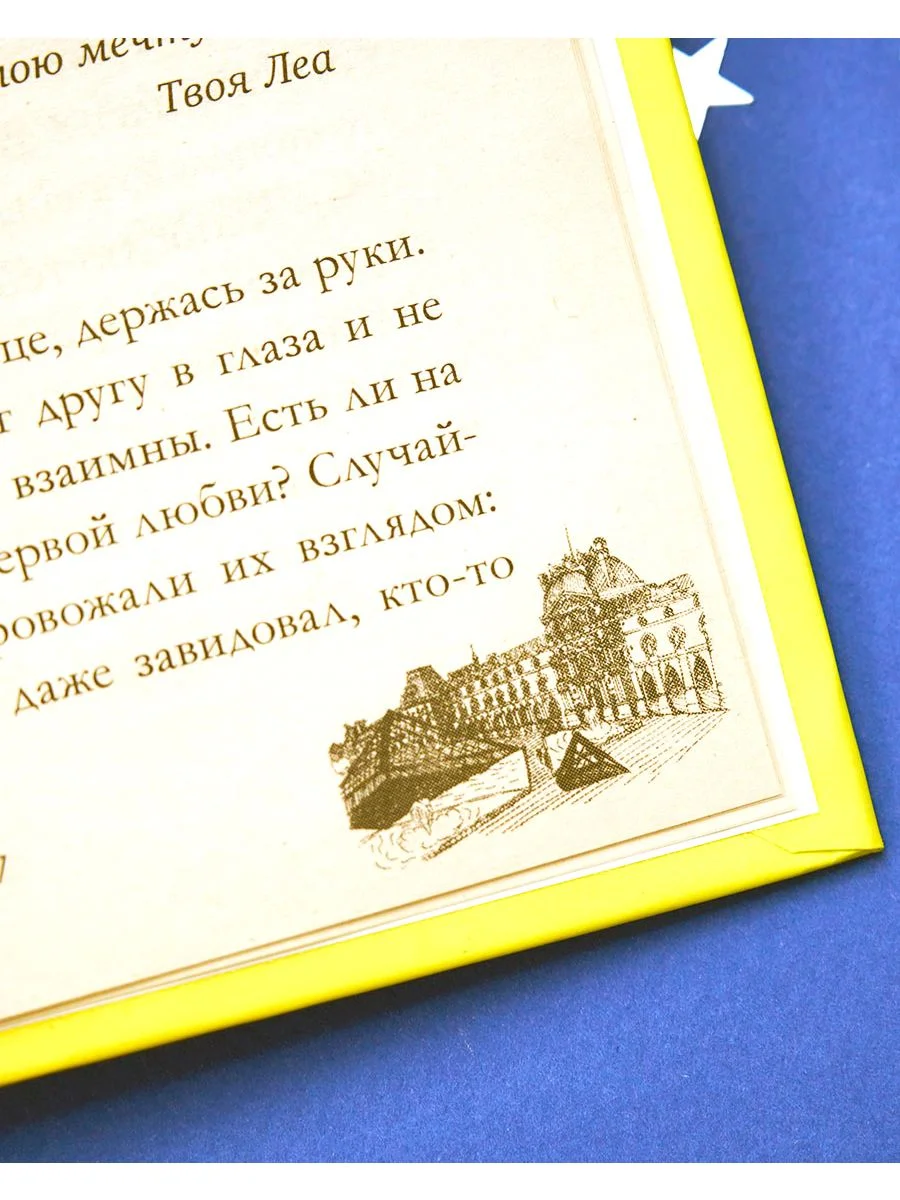 мечту
Твоя Леа
держась за руки.
другу в глаза и не
взаимны. Есть ли на
любви? Случай-
их взглядом:
даже завидовал, кто-то
7